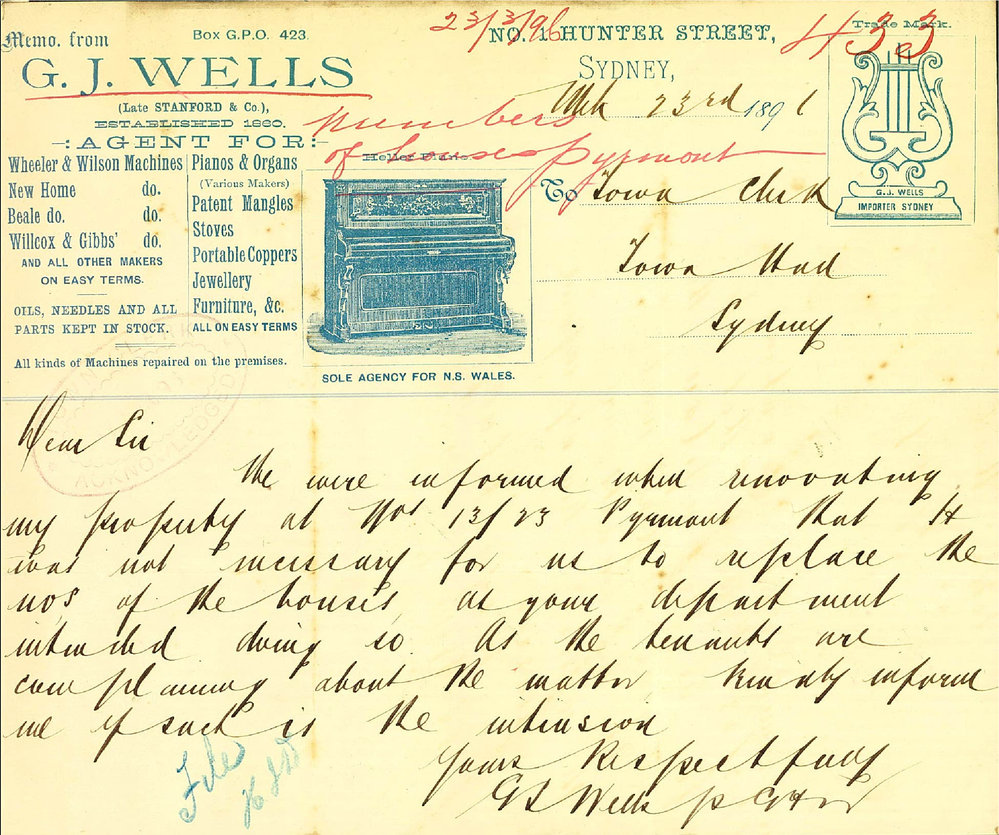 23/3/96
433
Memo. from
Box G.P.O. 423.
NO. 1 HUNTER STREET,
Trade Mark.
G. J. WELLS
SYDNEY,
(Late STANFORD & Co.),
Mch 23rd 1896
ESTABLISHED 1860.
Numbers
of houses Pyrmont
-:AGENT FOR:-
Wheeler & Wilson Machines
New Home do.
Beale do. do.
Willcox & Gibbs' do.
AND ALL OTHER MAKERS
ON EASY TERMS.
OILS, NEEDLES AND ALL
PARTS KEPT IN STOCK.
All kinds of Machines repaired on the premises.
Pianos & Organs
(Various Makers)
Patent Mangles
Stoves
Portable Coppers
Jewellery
Furniture, &c.
ALL ON EASY TERMS
SOLE AGENCY FOR N.S. WALES.
G. J. WELLS
IMPORTER SYDNEY
To Town Clerk
Town Hall
Sydney
ACKNOWLEDGED
Dear Sir
We were informed when renovating
my property at Nos 13/23 Pyrmont that it
was not necessary for us to replace the
nos of the houses, as your department
intended doing so. As the tenants are
complaining about the matter kindly inform
me if such is the intension
Yours Respectfully
GJ Wells p
File